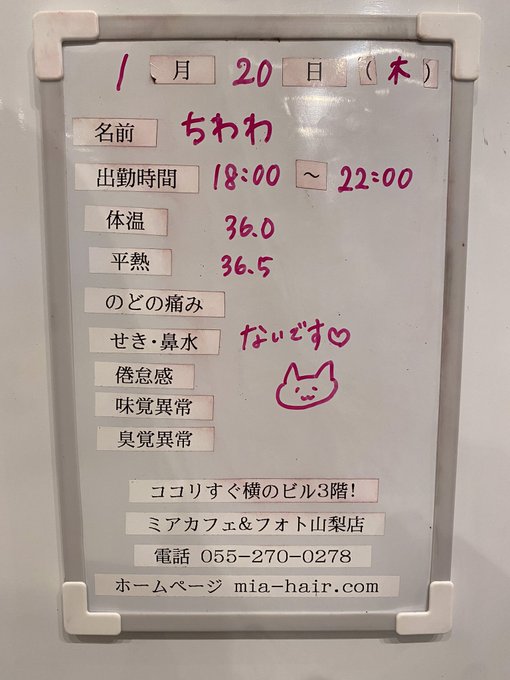 1月20日(木)
名前 ちわわ
出勤時間 18:00 ~ 22:00
体温 36.0
平熱 36.5
のどの痛み
せき・鼻水 ないです♡
倦怠感
味覚異常
臭覚異常
ココリすぐ横のビル3階!
ミアカフェ&フォト山梨店
電話 055-270-0278
ホームページ mia-hair.com